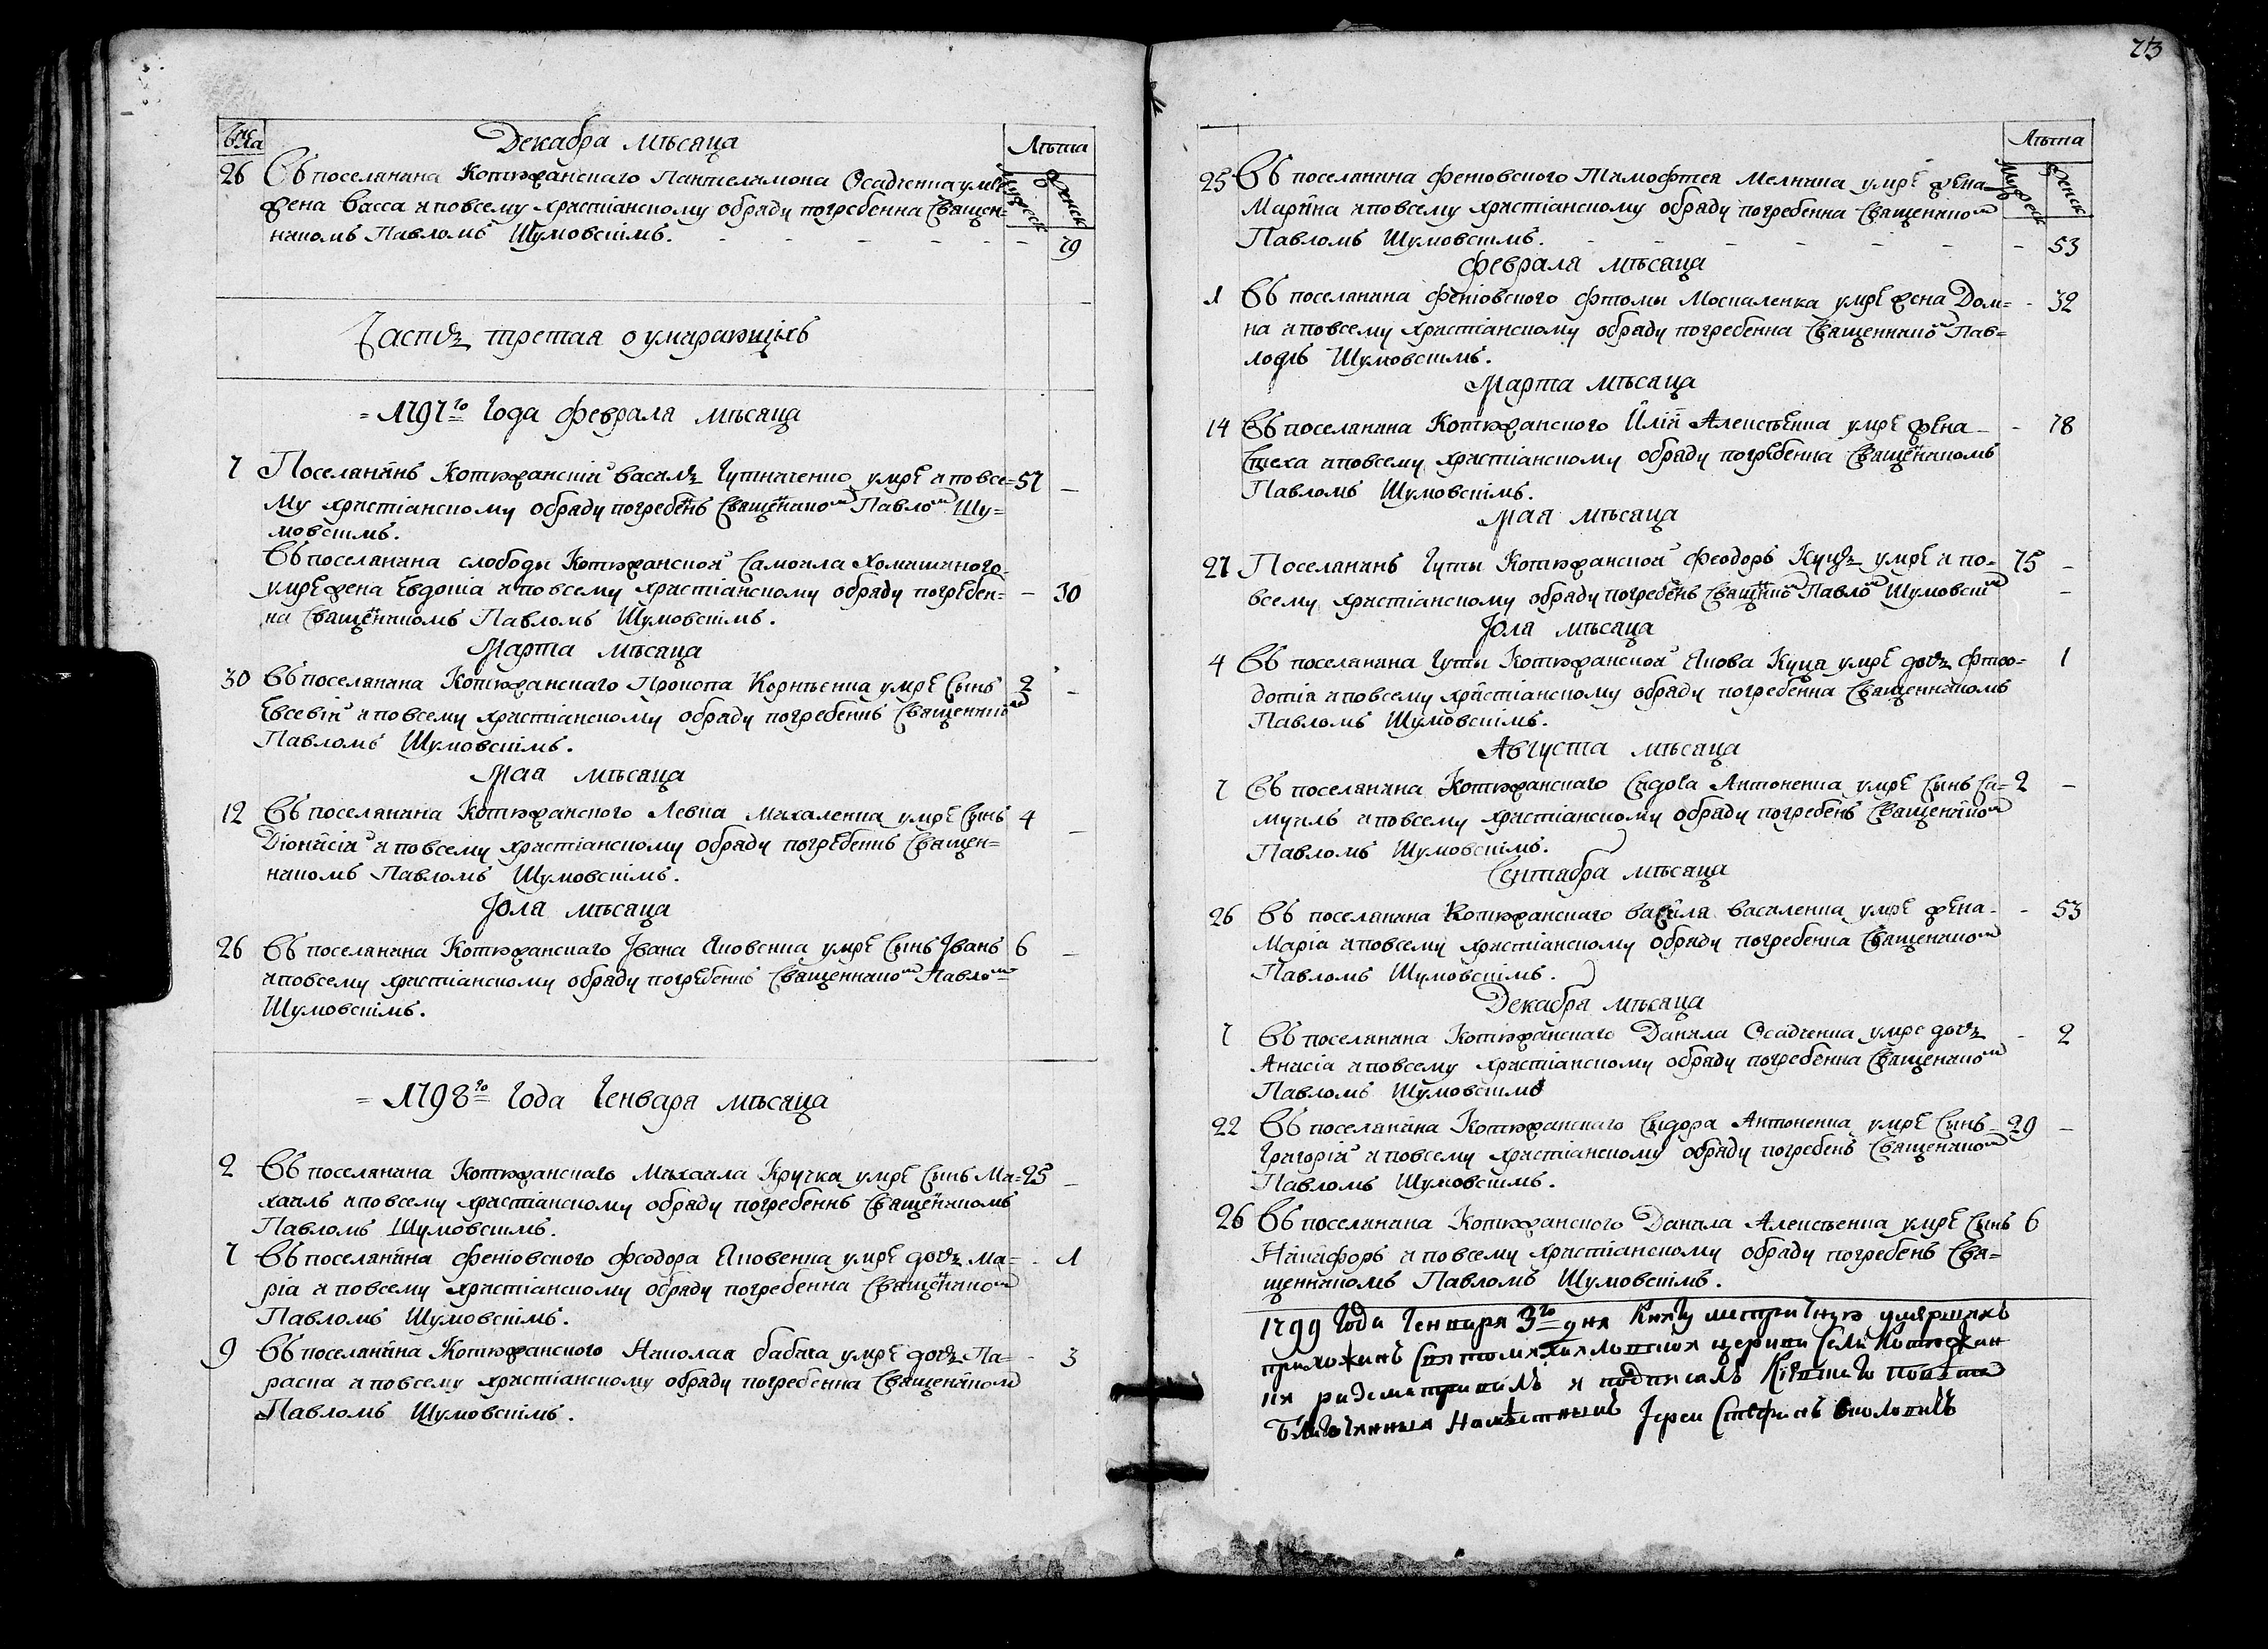 Чис
ла
Декабра мѣсяца
Лѣта
Мужеск
Женск
26 Въ поселянина Котюжанскаго Пантелимона Осадченка умре
жена Васса и по всему христіанскому обряду погребенна Священ=
никомъ Павломъ Шумовскімъ. - - - - - - - 79
Часть третая о умирающихъ
= 1797го Года Февраля мѣсяца
7 Поселянинъ Котюжанскій Василь Гутниченко умре и по все= 57 -
му христіанскому обряду погребенъ Священиком Павлом Шу=
мовскімъ.
Въ поселянина слободы Котюжанской Самоила Хомишиного
умре жена Евдокіа и по всему христіанскому обряду погребен= - 30
на Священикомъ Павломъ Шумовскімъ.
Марта мѣсяца
30 Въ поселянина Котюжанскаго Прокопа Корнѣенка умре Сынъ 2 -
Евсевій и по всему христіанскому обряду погребеннъ Священиком
Павломъ Шумовскімъ.
Маа мѣсяца
12 Въ поселянина Котюжанского Левка Михаленка умре Сынъ 4 -
Діонисій и по всему христіанскому обряду погребеннъ Священ=
никомъ Павломъ Шумовскімъ.
Іюла мѣсяца
26 Въ поселянина Котюжанскаго Івана Яковенка умре Сынъ Іванъ 6 -
и по всему христіанскому обряду погребеннъ Священником Павлом
Шумовскімъ.
= 1798го Года Генваря мѣсяца
2 Въ поселянина Котюжанскаго Михаила Кручка умре Сынъ Ми= 25 -
хаилъ и по всему христіанскому обряду погребеннъ Священикомъ
Павломъ Шумовскімъ.
7 Въ поселянина Феніовского Феодора Яковенка умре дочь Ма= - 1
ріа и по всему христіанскому обряду погребенна Священиком
Павломъ Шумовскімъ.
9 Въ поселянина Котюжанского Николая Бабача умре дочь Па= - 3
раска и по всему христіанскому обряду погребенна Священиком
Павломъ Шумовскімъ.
73
Лѣта
Мужеск
Женск
25 Въ поселянина Феніовского Тимофтея Мелника умре жена
Марина и по всему христіанскому обряду погребенна Священиком
Павломъ Шумовскімъ. - - - - - - - 53
Февраля мѣсяца
1 Въ поселянина Феніовского Фтомы Москаленка умре жена Дом= - 32
на и по всему христіанскому обряду погребенна Священником Пав=
ломъ Шумовскімъ.
Марта мѣсяца
14 Въ поселянина Котюжанского Иліи Алексѣенка умре жена - 78
Стеха и по всему христіанскому обряду погребенна Священикомъ
Павломъ Шумовскімъ.
Маа мѣсяца
27 Поселянинъ Гуты Котюжанской Феодоръ Куць умре и по= 75 -
всему христіанскому обряду погребенъ Священиком Павлом Шумовскім
Іюла мѣсяца
4 Въ поселянина Гуты Котюжанской Якова Куца умре дочь Фтео= 1
дотіа и по всему христіанскому обряду погребенна Священникомъ
Павломъ Шумовскімъ.
Августа мѣсяца
7 Въ поселянина Котюжанскаго Сидора Антоненка умре Сынъ Са= 2 -
муилъ и по всему христіанскому обряду погребенъ Священиком
Павломъ Шумовскімъ.
Сентабра мѣсяца
26 Въ поселянина Котюжанскаго Василя Василенка умре жена - 53
Маріа и по всему христіанскому обряду погребенна Священиком
Павломъ Шумовскімъ.
Декабра мѣсяца
7 Въ поселянина Котюжанскаго Данила Осадченка умре дочь - 2
Анасіа и по всему христіанскому обряду погребенна Священиком
Павломъ Шумовскімъ
22 Въ поселянина Котюжанскаго Сидора Антоненка умре Сынъ 29 -
Григорій и по всему христіанскому обряду погребенъ Священиком
Павломъ Шумовскімъ.
26 Въ поселянина Котюжанского Данила Алексѣенка умре Сынъ 6
Никифоръ и по всему христіанскому обряду погребенъ Свя=
щенникомъ Павломъ Шумовскімъ.
1799 Года Генваря 3го дня Книгу метричную умершихъ
прихожинъ Святомихайловской церкви села Котюжан
ки разсматривалъ и подписалъ повѣта
Намѣстникъ Іерей Стефанъ